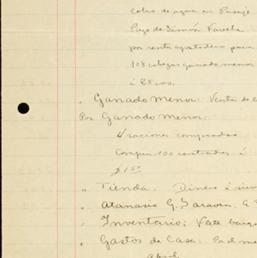 cobro de agua en Pasaje
Pago de Simón Varela
por renta apostadero para
108 cabezas ganado menor
á 25 cvos.
" Ganado Menor: Venta de
Por Ganado Menor:
4 raciones compradas
á
$1.50
" Tienda. Dinero é
" Atanasio G. Saravia.
" Inventario: Vale
" Gastos de Casa: En el mes
Abril